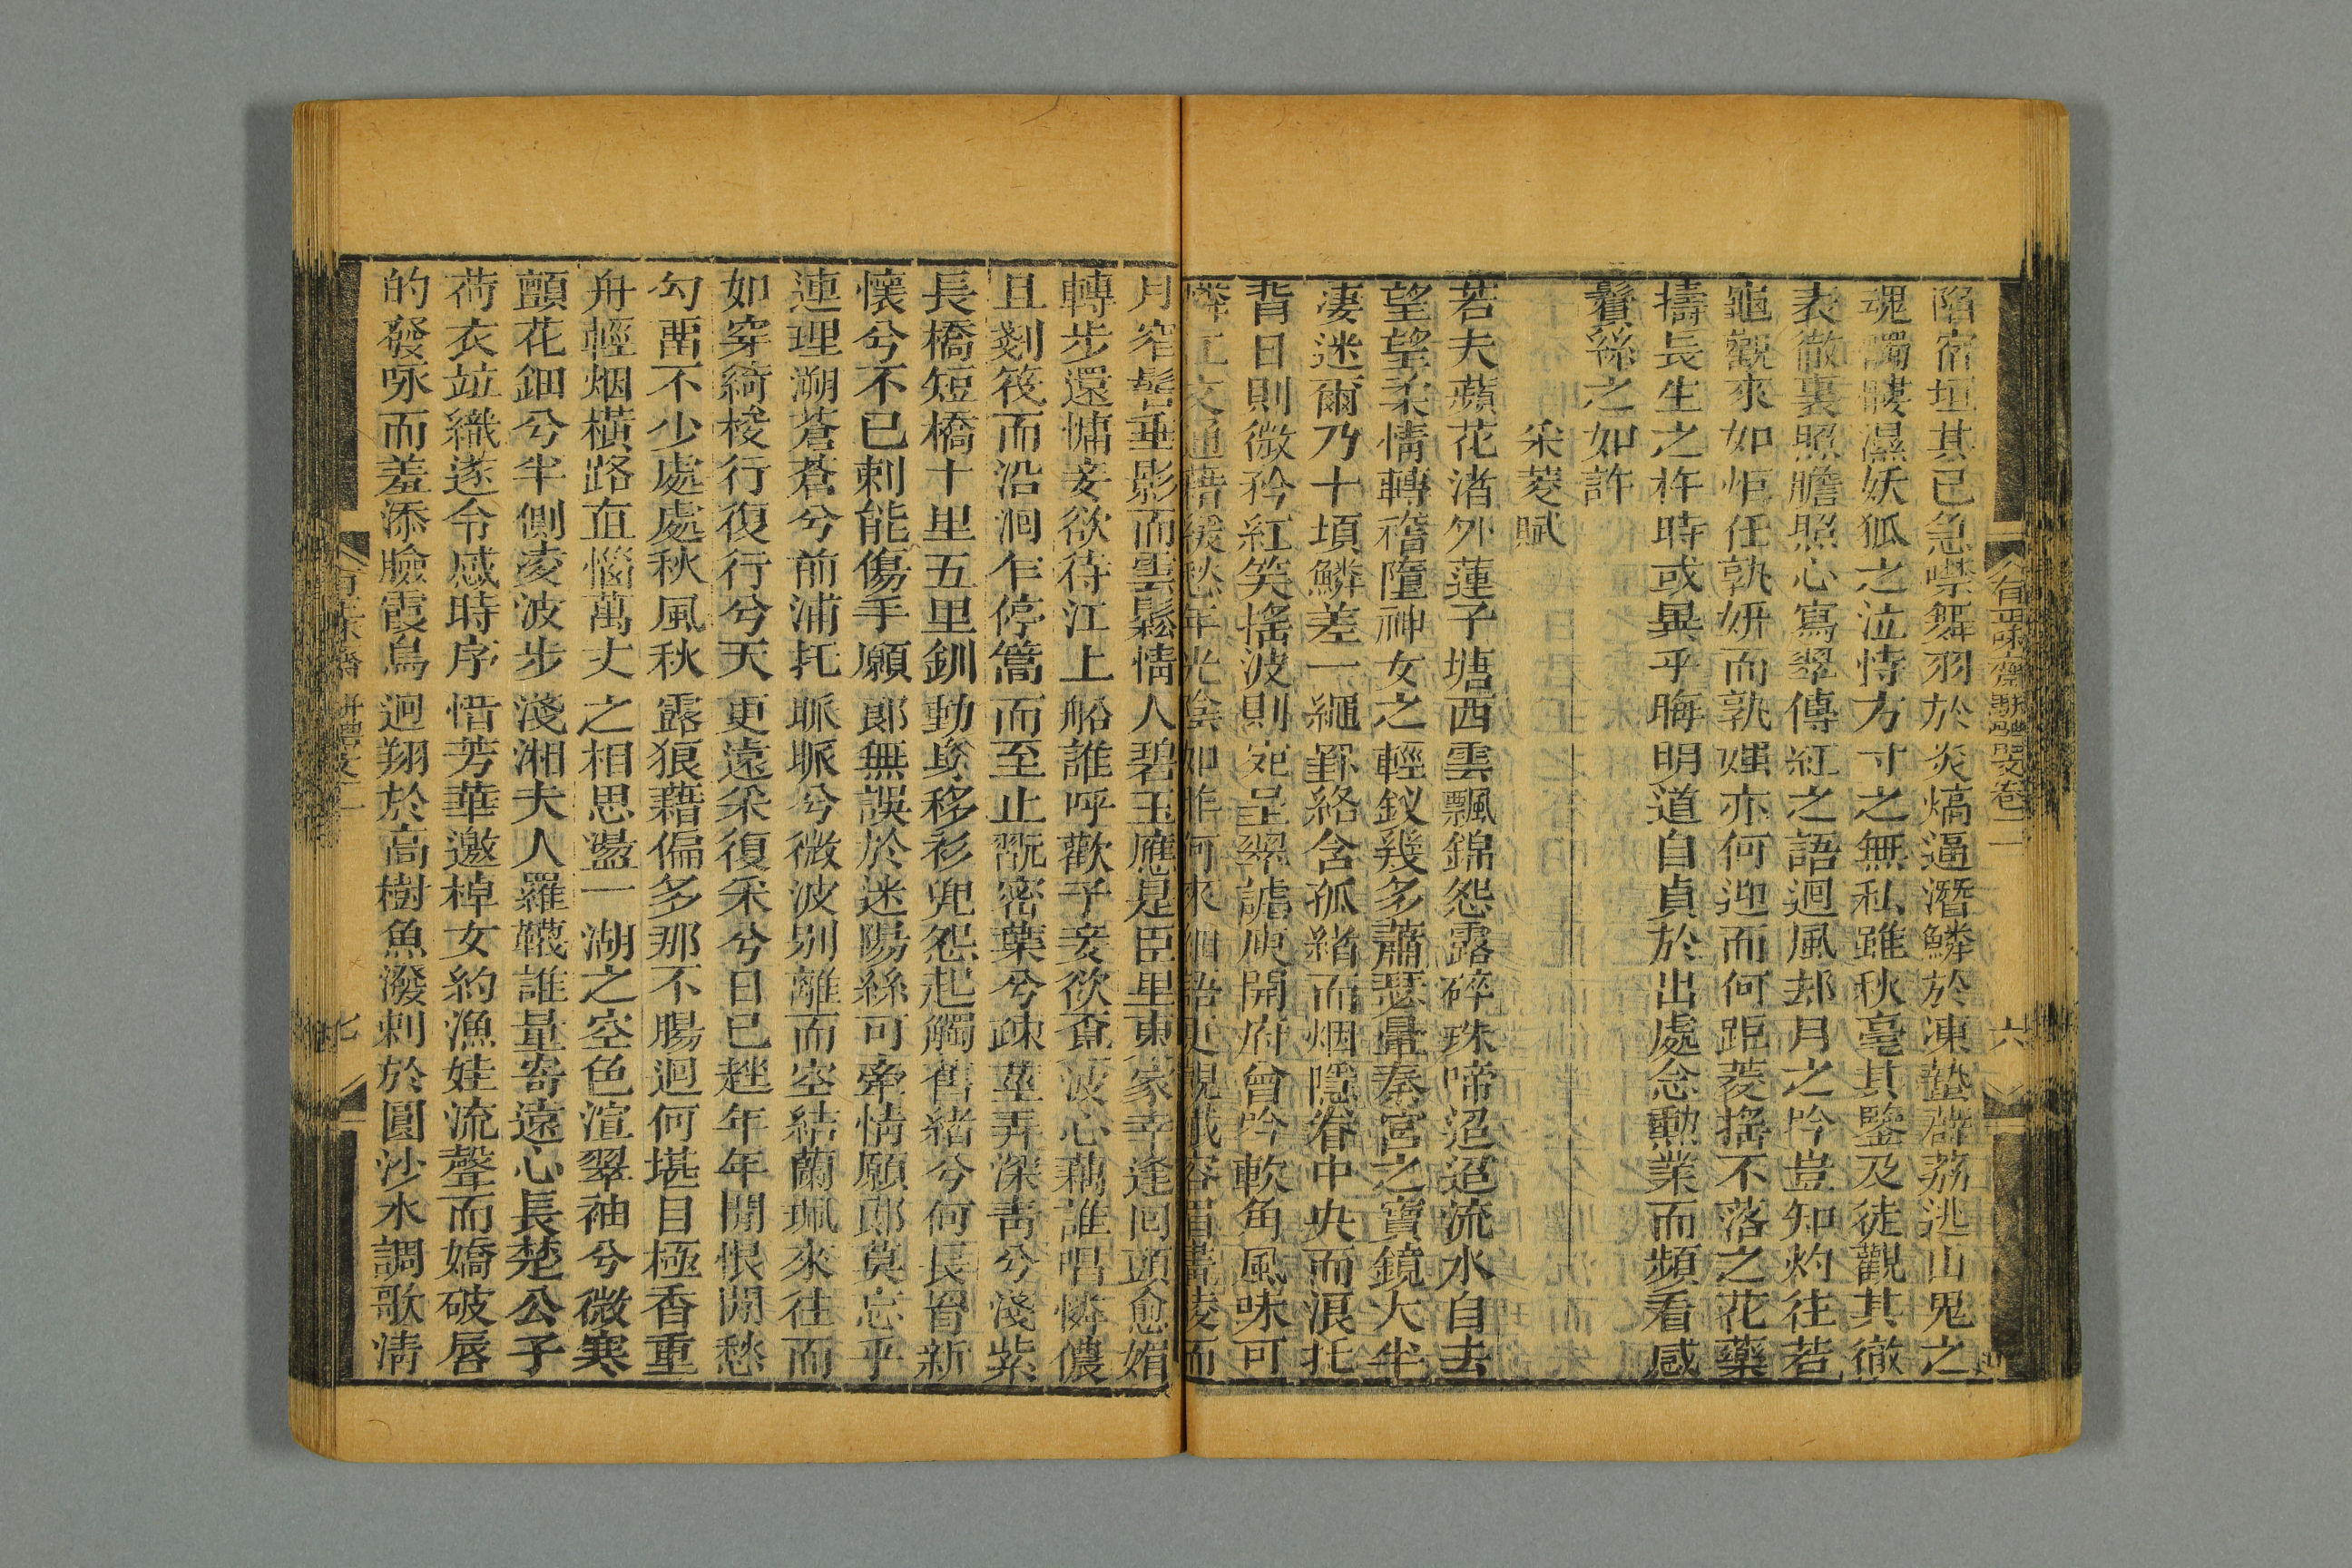 有正味齋駢體文卷二
六
陷宿垣其已急噤舞羽於炎熇逼潛鱗於凍蟄薜荔逃山鬼之
魂髑髏濕妖狐之泣恃方寸之無私雖秋毫其鑒及徒觀其徹
表徹裏照膽照心寫翠傳紅之語迴風却月之吟豈知灼往若
龜觀來如炬任孰妍而孰媸亦何迎而何距菱搖不落之花藥
擣長生之杵時或異乎晦明道自貞於出處念勲業而頻看感
鬢絲之如許
采菱賦
若夫蘋花渚外蓮子塘西雲飄錦怨露碎珠啼迢迢流水自去
望望柔情轉稽墮神女之輕釵幾多蕭瑟暈秦宮之寶鏡大半
淒迷爾乃十頃鱗差一繩罫絡含孤緒而烟隱眷中央而浪托
背日則微矜紅笑搖波則宛呈翠謔庾開府曾吟軟角風味可
江文通藉緩愁年光陰如昨何來細語更覩纖容眉畫菱而
月窄髻垂影而雲鬆情人碧玉應是臣里東家幸逢回頭愈媚
轉步還慵妾欲待江上船誰呼歡乎妾欲頫波心藕誰唱憐儂
且剡筏而沿洄乍停篙而至止翫密葉兮疎莖弄深青兮淺紫
長橋短橋十里五里釧動身移衫兜怨起觸舊緒兮何長冒新
懷兮不已刺能傷手願郎無誤於迷陽絲可牽情願郎莫忘乎
連理溯蒼蒼兮前浦托脈脈兮微波别離而空結蘭珮來往而
如穿綺梭行復行兮天更遠采復采兮日已趖年年閒恨閒愁
勾畱不少處處秋風秋露狼藉偏多那不腸迴何堪目極香重
舟輕烟橫路直惱萬丈之相思盪一湖之空色渲翠袖兮微寒
顫花鈿兮半側凌波步淺湘夫人羅韈誰量寄遠心長楚公子
荷衣竝織遂令感時序惜芳華邀棹女約漁娃流聲而嬌破唇
的發咏而羞添臉霞鳥迴翔於高樹魚潑剌於圓沙水調歌清
七